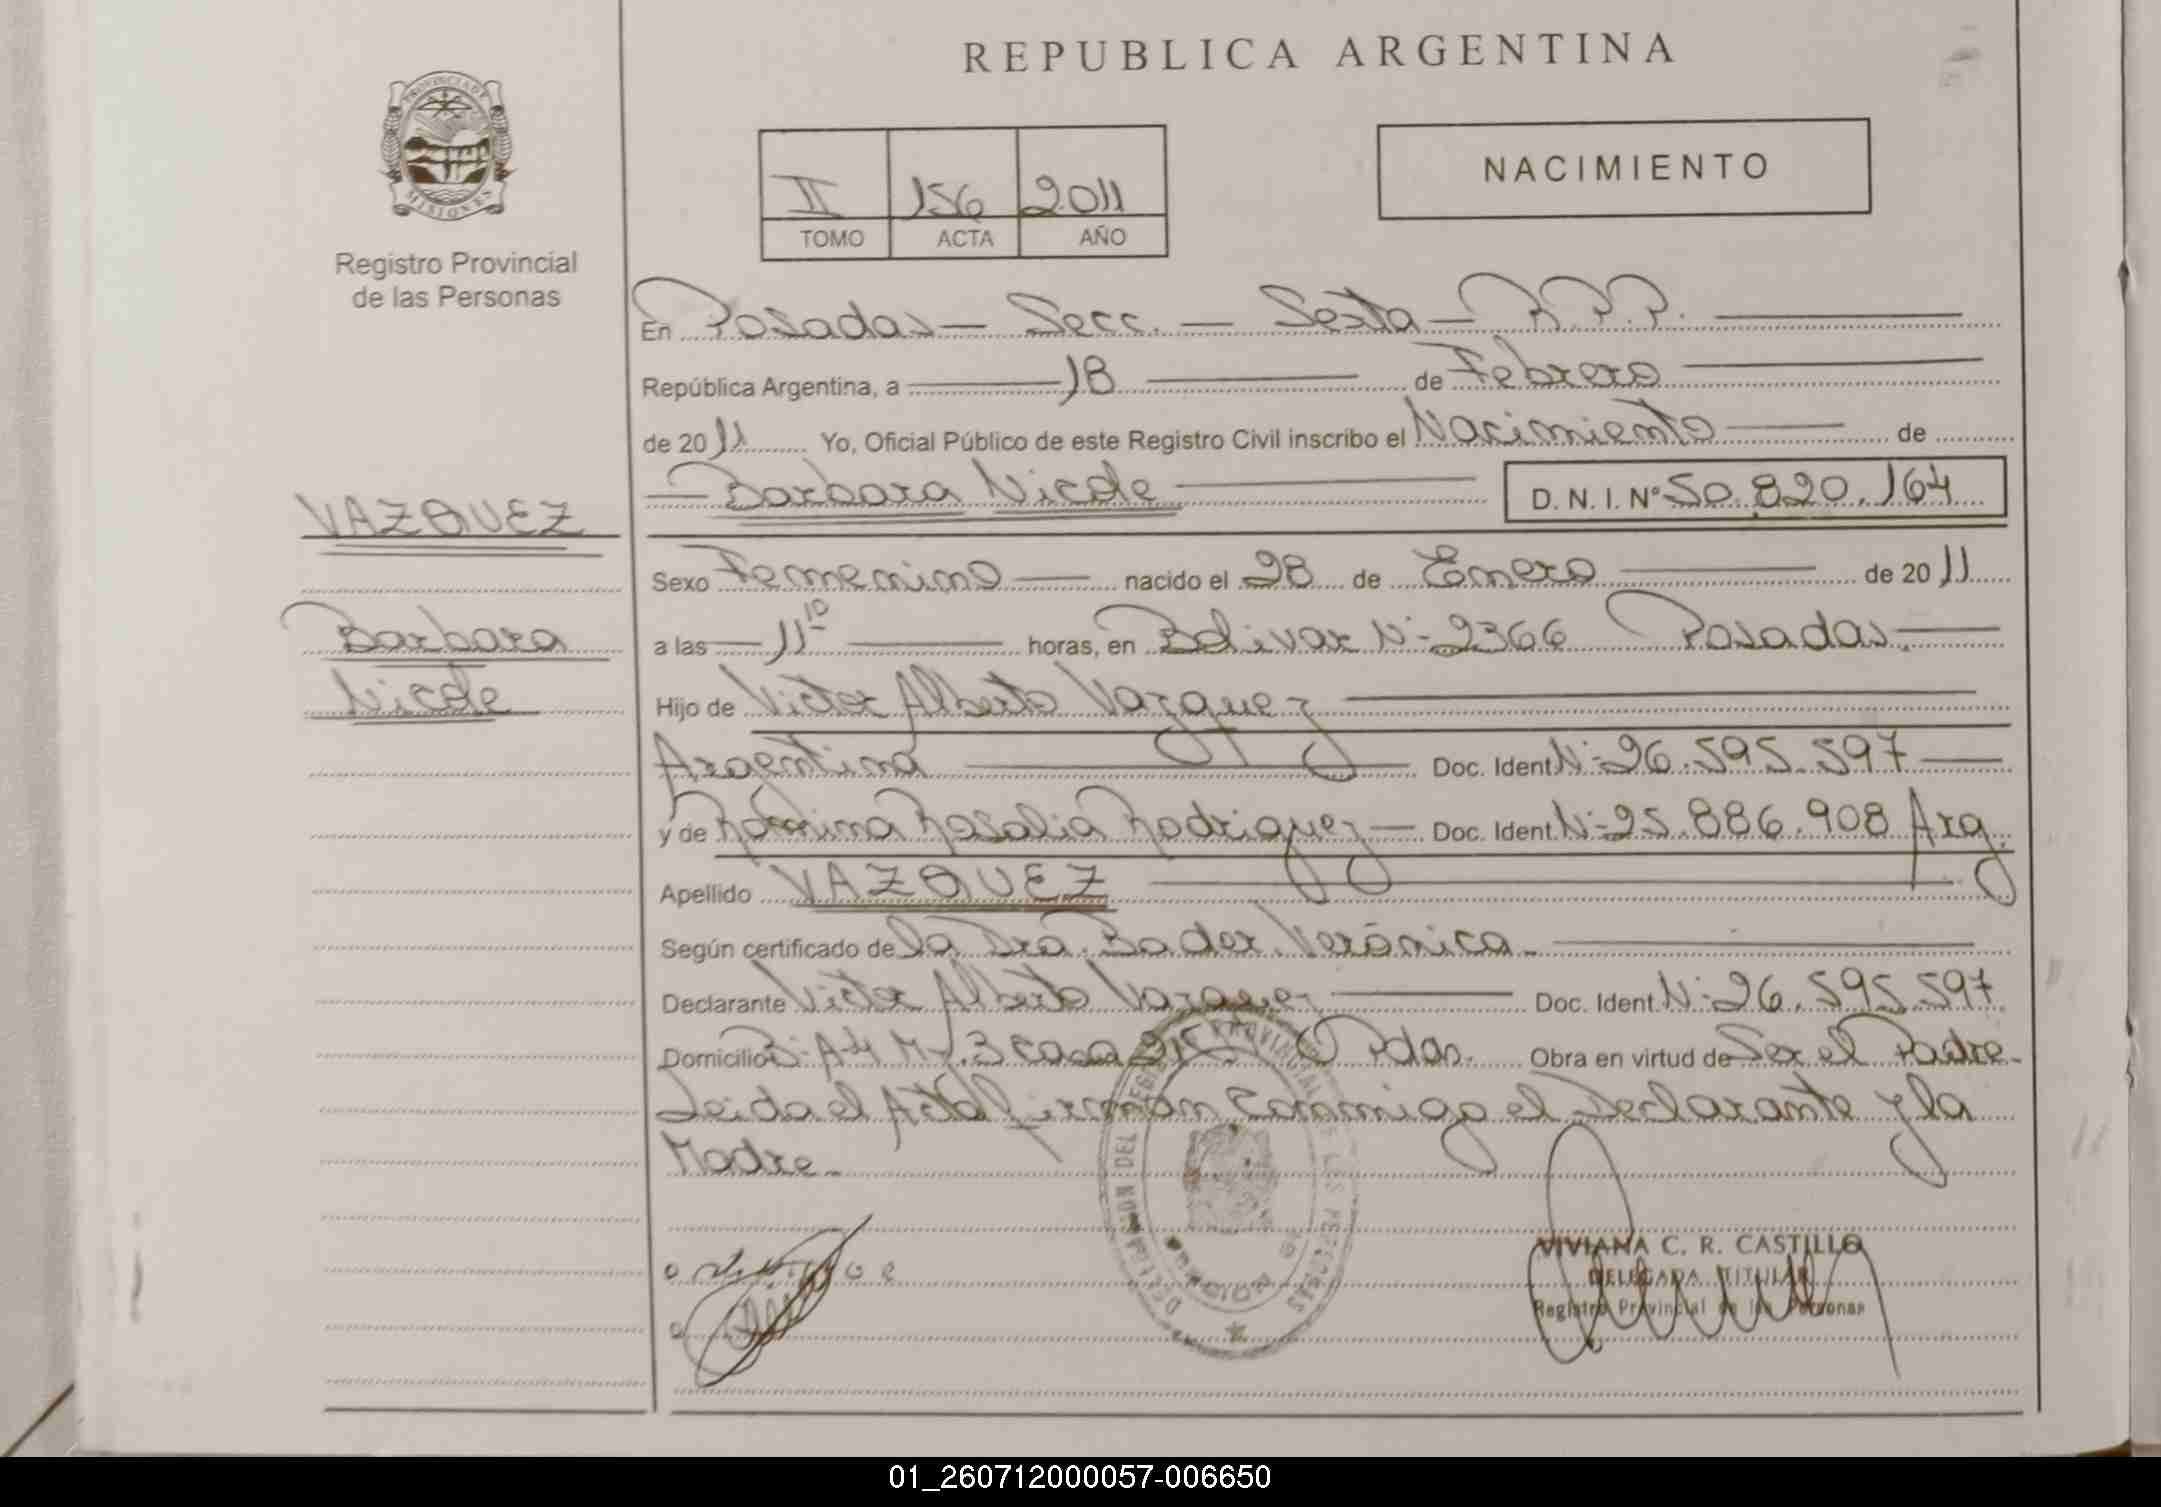 REPUBLICA ARGENTINA
PROVINCIA DE
MISIONES
Registro Provincial
de las Personas
II 156 2011
TOMO ACTA AÑO
NACIMIENTO
En Posadas — Secc. — Sexta — R.P.P.
República Argentina, a 18 de Febrero
de 2011 Yo, Oficial Público de este Registro Civil inscribo el Nacimiento de
Barbara Nicole D. N. I. Nº 50.820.164
VAZQUEZ
Barbara
Nicole
Sexo Femenino nacido el 28 de Enero de 2011
a las 11 10 horas, en Bolivar Nº 2366 Posadas.
Hijo de Victor Alberto Vazquez
Argentina Doc. Ident. Nº 26.595.597
y de Romina Rosalia Rodriguez Doc. Ident. Nº 25.886.908 Arg.
Apellido VAZQUEZ
Según certificado de la Dra. Bader Verónica
Declarante Victor Alberto Vazquez Doc. Ident. Nº 26.595.597
Domicilio casa Pdas. Obra en virtud de Ser el Padre
Leida el Acta firman conmigo el Declarante y la
Madre
VIVIANA C. R. CASTILLO
DELEGADA TITULAR
Registro Provincial de las Personas
01_260712000057-006650